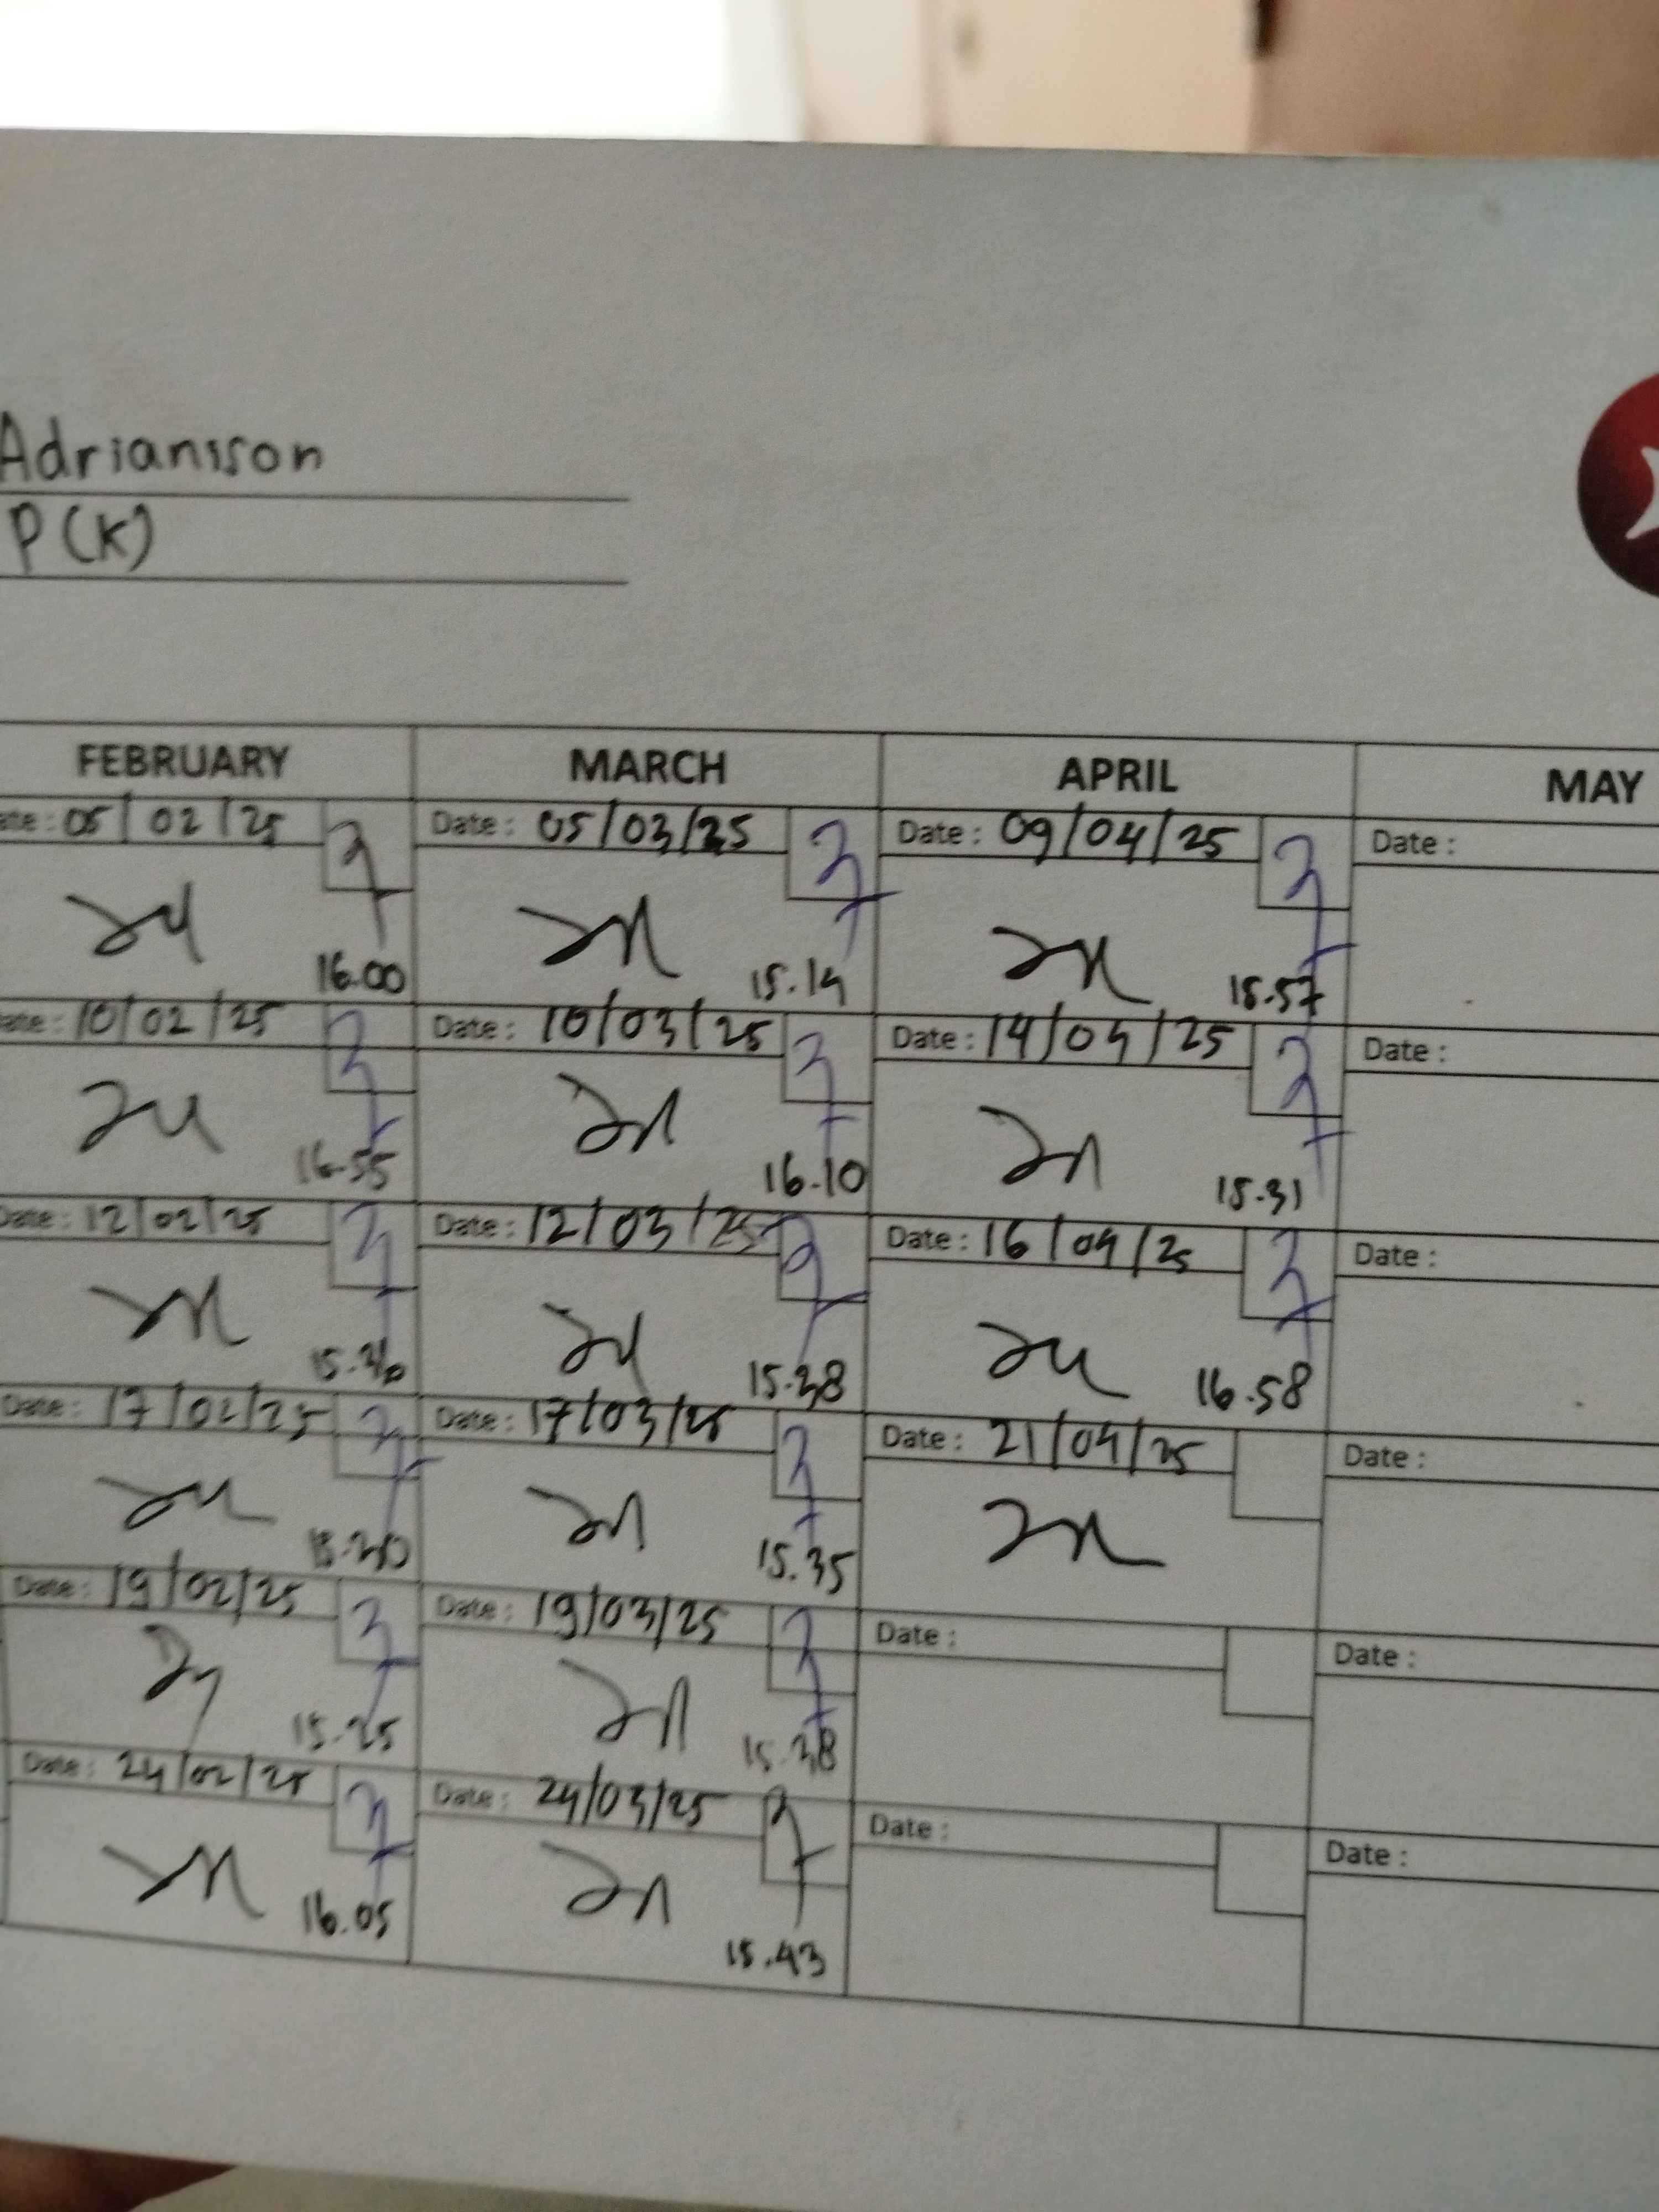 Adrianison
P(K)
FEBRUARY MARCH APRIL MAY
ate: 05/02/25 Date: 05/03/25 Date: 09/04/25 Date:
16.00 15.14 15.57
ate: 10/02/25 Date: 10/03/25 Date: 14/04/25 Date:
16.55 16.10 15.31
Date: 12/02/25 Date: 12/03/25 Date: 16/04/25 Date:
15.38 16.58
Date: 17/02/25 Date: 17/03/25 Date: 21/04/25 Date:
15.35
Date: 19/02/25 Date: 19/03/25 Date: Date:
15.25 15.38
Date: 24/02/25 Date: 24/03/25 Date: Date:
16.05 15.43